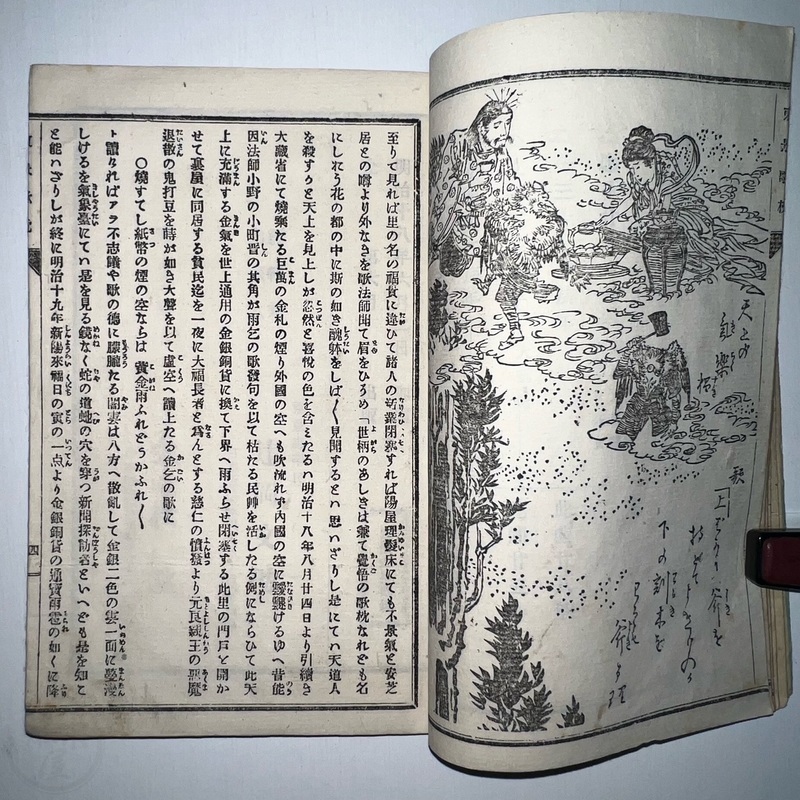 天上の
氣樂
歌
下の
至りて見れば里の名の福貧に違ひて諸人の活業閉塞すれば陽屋理髮床にても不景氣と安芝
居との噂より外なきを歌法師聞て眉をひそめ「世柄のあしきは兼て覺悟の歌枕なれども名
にしれう花の都の中に斯の如き醜躰をしば〱見聞するとハ思いざりし是にてハ天道人
を殺すかと天上を見上しが忽然と喜悅の色を含みたるハ明治十八年八月廿四日より引續き
大藏省にて燒棄たる巨萬の金札の煙り外國の空へも吹流れず內國の空に靉靆けるゆへ昔能
因法師小野の小町晋の其角が雨乞の歌發句を以て枯たる民艸を活したる例にならひて此天
上に充滿する金氣を世上通用の金銀銅貨に換て下界へ雨ふらせ閉塞する此里の門戸と開か
せて裏屋に同居する貧民迄を一夜に大福長者と爲んとする慈仁の憤發より元良親王の惡魔
退散の鬼打豆を蒔が如き大聲を以て虛空へ讀上たる金乞の歌に
〇燒すてし紙幣の煙の空ならは 黃金雨ふれどうかふれ〱
ト讀ければアラ不思議や歌の德に朦朧たる闇雲は八方へ散亂して金銀二色の雲一面に靉靆
しけるを氣象臺にてハ是を見る鏡なく蛇の道の穴を穿つ新聞探訪者といへども是を知こ
と能ハざりしが終に明治十九年新陽來福日の寅の一点より金銀銅貨の通寳雨雹の如くに降
四